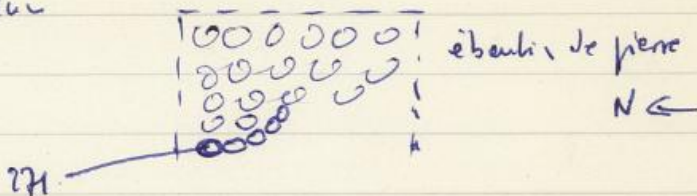 éboulis de pierre
N
271